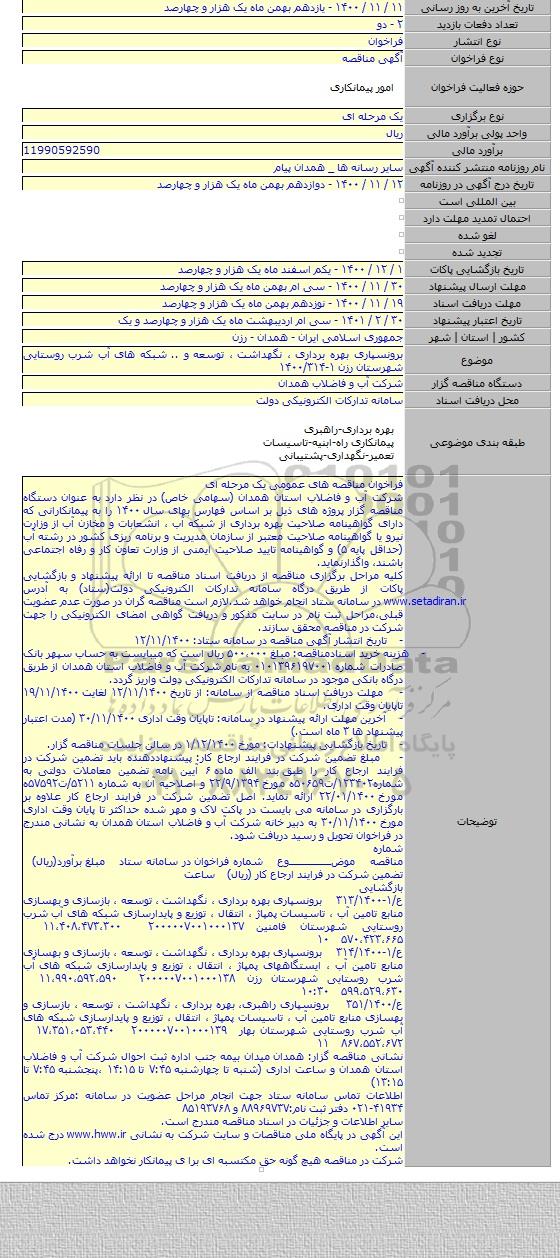 تاریخ آخرین به روز رسانی ۱۱ / ۱۱ / ۱۴۰۰ - یازدهم بهمن ماه یک هزار و چهارصد
تعداد دفعات بازدید ۲ - دو
نوع انتشار فراخوان
نوع فراخوان آگهی مناقصه
حوزه فعالیت فراخوان امور پیمانکاری
نوع برگزاری یک مرحله ای
واحد پولی برآورد مالی ریال
برآورد مالی 11990592590
نام روزنامه منتشر کننده آگهی سایر رسانه ها _ همدان پیام
تاریخ درج آگهی در روزنامه ۱۲ / ۱۱ / ۱۴۰۰ - دوازدهم بهمن ماه یک هزار و چهارصد
بین المللی است
احتمال تمدید مهلت دارد
لغو شده
تجدید شده
تاریخ بازگشایی پاکات ۱ / ۱۲ / ۱۴۰۰ - یکم اسفند ماه یک هزار و چهارصد
مهلت ارسال پیشنهاد ۳۰ / ۱۱ / ۱۴۰۰ - سی ام بهمن ماه یک هزار و چهارصد
مهلت دریافت اسناد ۱۹ / ۱۱ / ۱۴۰۰ - نوزدهم بهمن ماه یک هزار و چهارصد
تاریخ اعتبار پیشنهاد ۳۰ / ۲ / ۱۴۰۱ - سی ام اردیبهشت ماه یک هزار و چهارصد و یک
کشور | استان | شهر جمهوری اسلامی ایران - همدان - رزن
موضوع برونسپاری بهره برداری ، نگهداشت ، توسعه و .. شبکه های آب شرب روستایی
شهرستان رزن ۱-۱۴۰۰/۳۱۴
دستگاه مناقصه گزار شرکت آب و فاضلاب همدان
محل دریافت اسناد سامانه تدارکات الکترونیکی دولت
طبقه بندی موضوعی
بهره برداری-راهبری
پیمانکاری راه-ابنیه-تاسیسات
تعمیر-نگهداری-پشتیبانی
توضیحات
فراخوان مناقصه های عمومی یک مرحله ای
شرکت آب و فاضلاب استان همدان (سهامی خاص) در نظر دارد به عنوان دستگاه
مناقصه گزار پروژه های ذیل بر اساس فهارس بهای سال ۱۴۰۰ را به پیمانکارانی که
دارای گواهینامه صلاحیت بهره برداری از شبکه آب ، انشعابات و مخازن آب از وزارت
نیرو یا گواهینامه صلاحیت معتبر از سازمان مدیریت و برنامه ریزی کشور در رشته آب
(حداقل پایه ۵) و گواهینامه تایید صلاحیت ایمنی از وزارت تعاون کار و رفاه اجتماعی
باشند، واگذارنماید.
کلیه مراحل برگزاری مناقصه از دریافت اسناد مناقصه تا ارائه پیشنهاد و بازگشایی
پاکات از طریق درگاه سامانه تدارکات الکترونیکی دولت(ستاد) به آدرس
www.setadiran.ir در سامانه ستاد انجام خواهد شد.لازم است مناقصه گران در صورت عدم عضویت
قبلی،مراحل ثبت نام در سایت مذکور و دریافت گواهی امضای الکترونیکی را جهت
شرکت در مناقصه محقق سازند.
- تاریخ انتشار آگهی مناقصه در سامانه ستاد: ۱۲/۱۱/۱۴۰۰
- هزینه خرید اسنادمناقصه: مبلغ ۵۰۰،۰۰۰ ریال است که میبایست به حساب سپهر بانک
صادرات شماره ۰۱۰۱۳۹۶۱۹۷۰۰۱ به نام شرکت آب و فاضلاب استان همدان از طریق
درگاه بانکی موجود در سامانه تدارکات الکترونیکی دولت واریز گردد.
- مهلت دریافت اسناد مناقصه از سامانه: از تاریخ ۱۲/۱۱/۱۴۰۰ لغایت ۱۹/۱۱/۱۴۰۰
تاپایان وقت اداری.
- آخرین مهلت ارائه پیشنهاد در سامانه: تاپایان وقت اداری ۳۰/۱۱/۱۴۰۰ (مدت اعتبار
پیشنهاد ها ۳ ماه است.)
- تاریخ بازگشایی پیشنهادات: مورخ ۱/۱۲/۱۴۰۰ در سالن جلسات مناقصه گزار.
- مبلغ تضمین شرکت در فرایند ارجاع کار: پیشنهاددهنده باید تضمین شرکت در
فرایند ارجاع کار را طبق بند الف ماده ۶ آیین نامه تضمین معاملات دولتی به
شماره۱۲۳۴۰۲/ت۵۰۶۵۹ه مورخ ۲۲/۹/۱۳۹۴ و اصلاحیه آن به شماره ۵۲۱۱/ت۵۷۵۹۲ه
مورخ ۲۲/۰۱/۱۴۰۰ ارائه نماید. اصل تضمین شرکت در فرایند ارجاع کار علاوه بر
بارگزاری در سامانه می بایست در پاکت لاک و مهر شده حداکثر تا پایان وقت اداری
مورخ ۳۰/۱۱/۱۴۰۰ به دبیرخانه شرکت آب و فاضلاب استان همدان به نشانی مندرج
در فراخوان تحویل و رسید دریافت شود.
شماره
مناقصه موضـــــــوع شماره فراخوان در سامانه ستاد مبلغ برآورد(ریال)
تضمین شرکت در فرایند ارجاع کار (ریال) ساعت
بازگشایی
ع/۱-۳۱۳/۱۴۰۰ برونسپاری بهره برداری ، نگهداشت ، توسعه ، بازسازی و بهسازی
منابع تامین آب ، تاسیسات پمپاژ ، انتقال ، توزیع و پایدارسازی شبکه های آب شرب
روستایی شهرستان فامنین ۲۰۰۰۰۰۷۰۰۱۰۰۰۱۳۷ ۱۱،۴۰۸،۴۷۳،۳۰۰
۵۷۰،۴۲۳،۶۶۵ ۱۰
ع/۱-۳۱۴/۱۴۰۰ برونسپاری بهره برداری ، نگهداشت ، توسعه ، بازسازی و بهسازی
منابع تامین آب ، ایستگاههای پمپاژ ، انتقال ، توزیع و پایدارسازی شبکه های آب
شرب روستایی شهرستان رزن ۲۰۰۰۰۰۷۰۰۱۰۰۰۱۳۸ ۱۱،۹۹۰،۵۹۲،۵۹۰
۵۹۹،۵۲۹،۶۳۰ ۱۰:۳۰
ع/۳۵۱/۱۴۰۰ برونسپاری راهبری، بهره برداری ، نگهداشت ، توسعه ، بازسازی و
بهسازی منابع تامین آب ، تاسیسات پمپاژ ، انتقال ، توزیع و پایدارسازی شبکه های
آب شرب روستایی شهرستان بهار ۲۰۰۰۰۰۷۰۰۱۰۰۰۱۳۹ ۱۷،۳۵۱،۰۵۳،۴۴۰
۸۶۷،۵۵۲،۶۷۲ ۱۱
نشانی مناقصه گزار: همدان میدان بیمه جنب اداره ثبت احوال شرکت آب و فاضلاب
استان همدان و ساعت اداری (شنبه تا چهارشنبه ۷:۴۵ تا ۱۴:۱۵ ،پنجشنبه ۷:۴۵ تا
۱۳:۱۵)
اطلاعات تماس سامانه ستاد جهت انجام مراحل عضویت در سامانه :مرکز تماس
۰۲۱-۴۱۹۳۴ دفتر ثبت نام:۸۸۹۶۹۷۳۷ و ۸۵۱۹۳۷۶۸
سایر اطلاعات و جزئیات در اسناد مناقصه مندرج است.
این آگهی در پایگاه ملی مناقصات و سایت شرکت به نشانی www.hww.ir درج شده
است.
شرکت در مناقصه هیچ گونه حق مکتسبه ای برا ی پیمانکار نخواهد داشت.